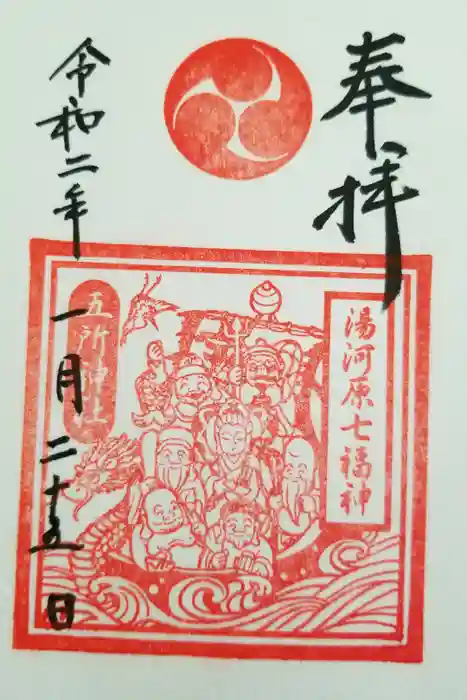 奉拝
湯河原七福神
五所神社
令和二年
一月二十五日